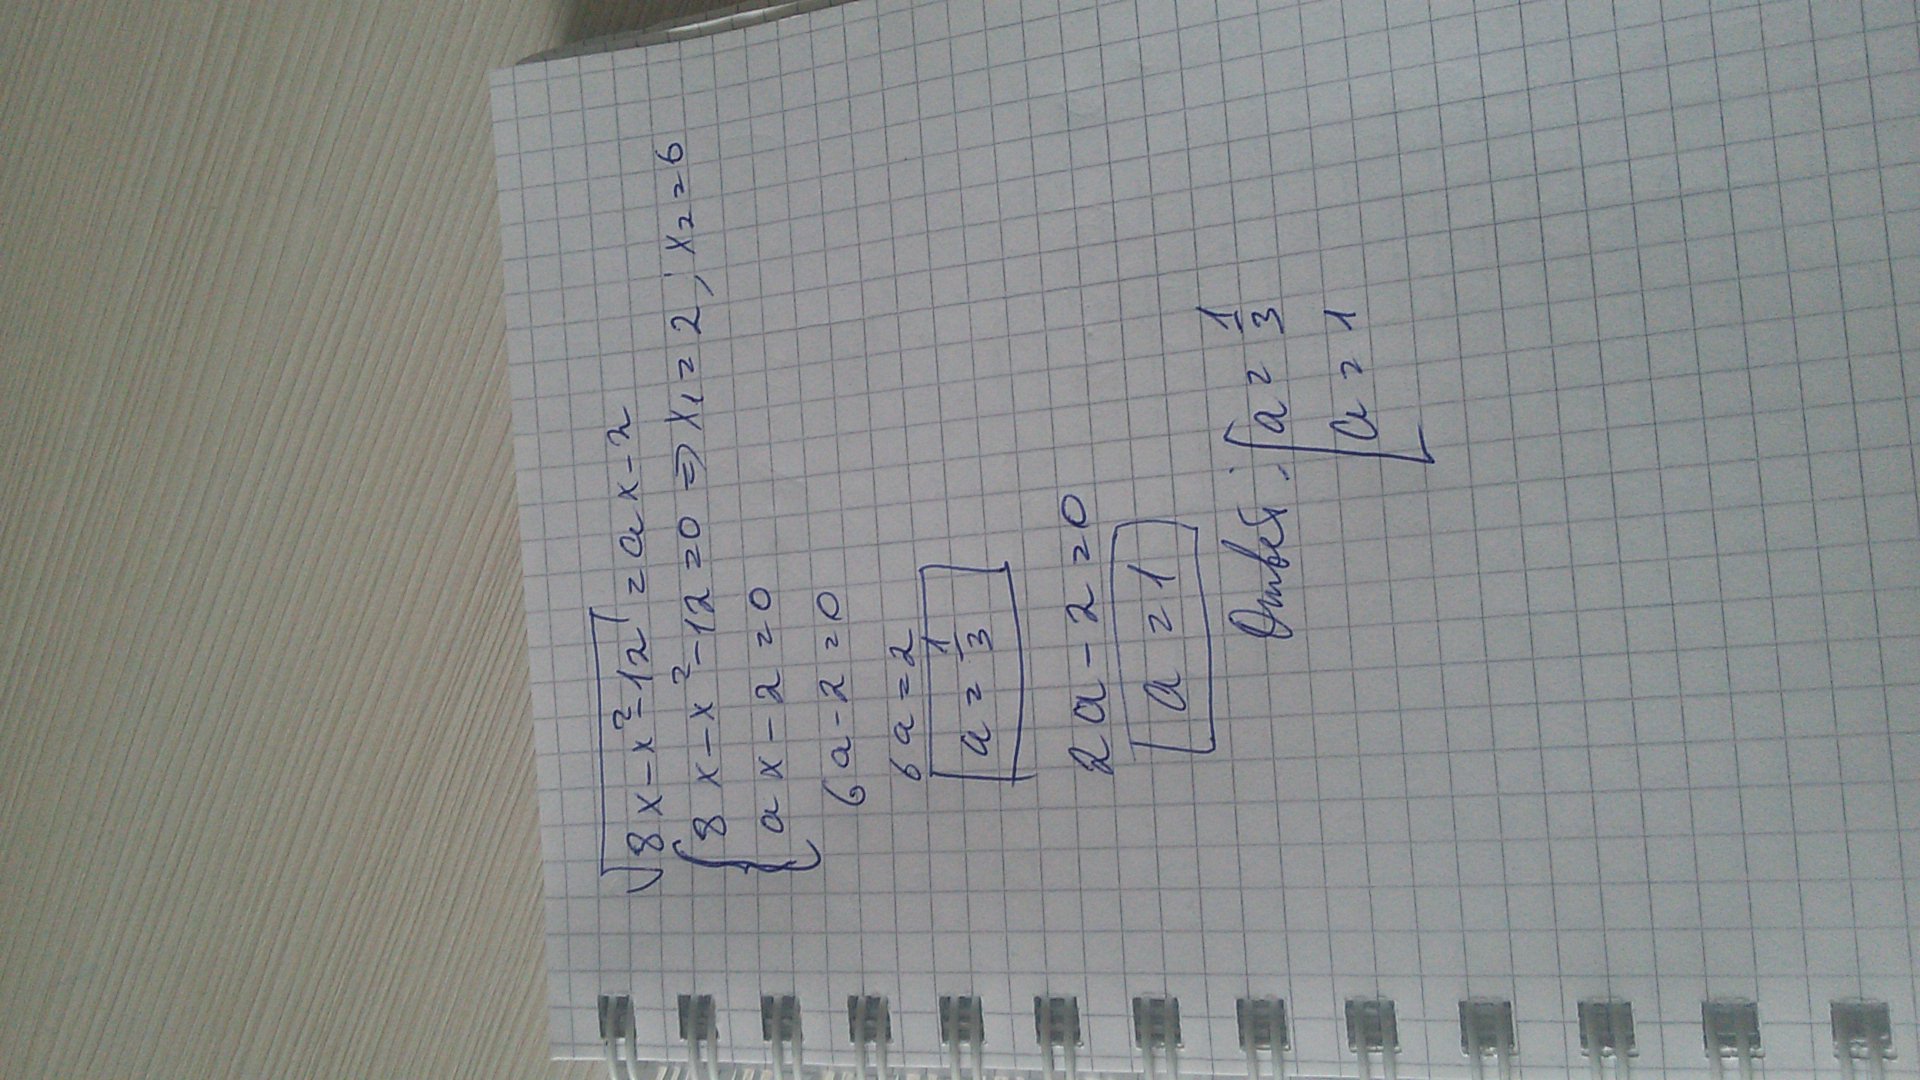 √8x-x²-12 = ax-2
{8x-x²-12=0 ⇒ x₁=2; x₂=6
ax-2=0
6a-2=0
6a=2
a=1/3
2a-2=0
a=1
Ответ: [a=1/3
a=1